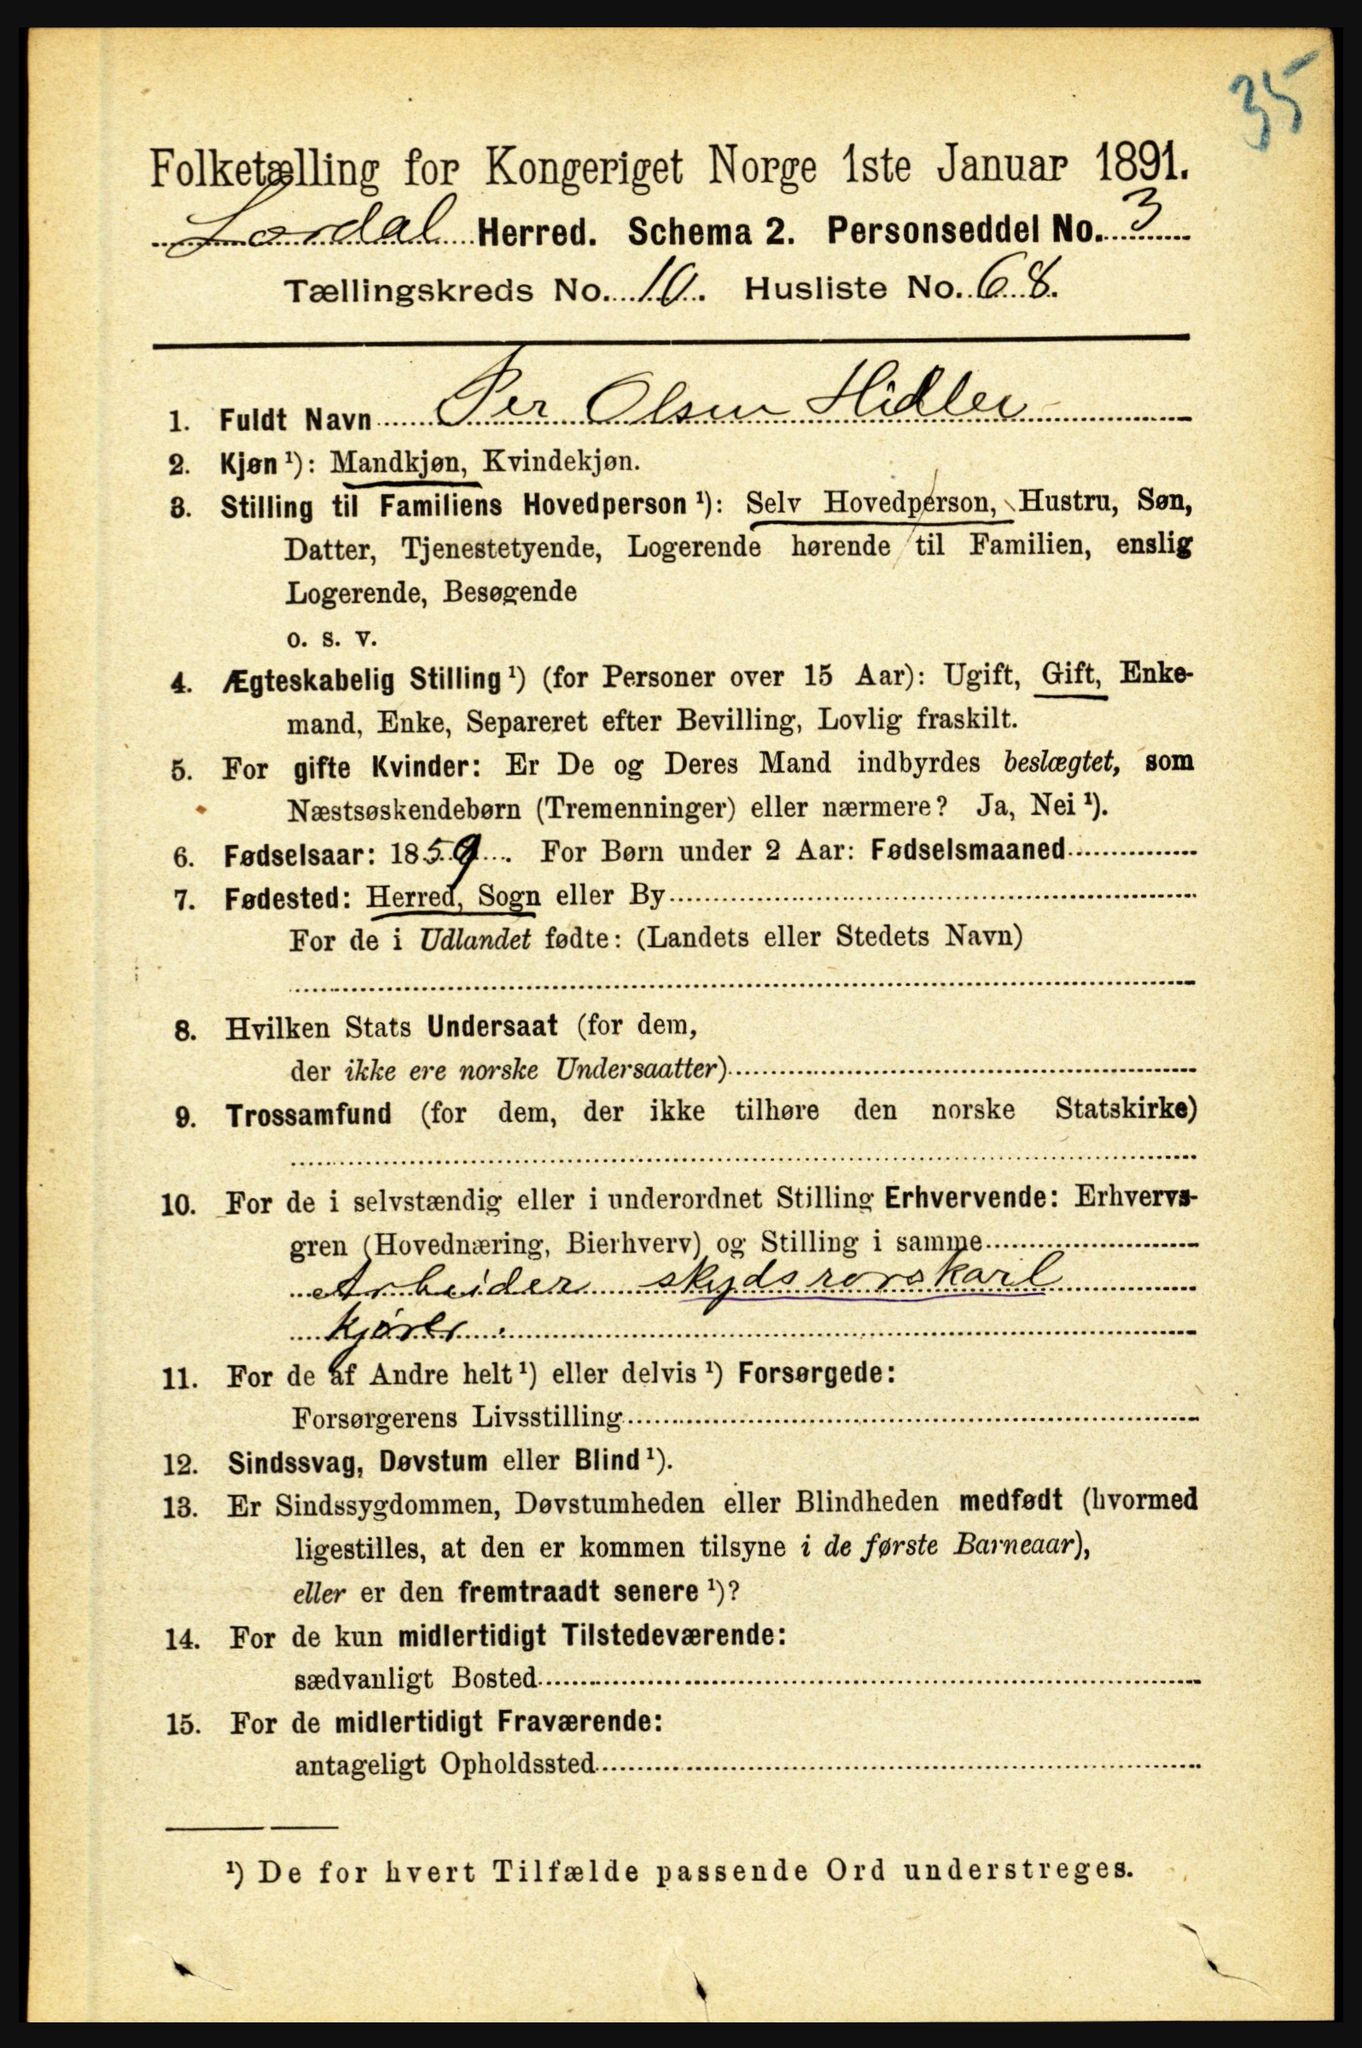 35
Folketælling for Kongeriget Norge 1ste Januar 1891.
Lærdal Herred. Schema 2. Personseddel No. 3
Tællingskreds No. 10. Husliste No. 68.
1. Fuldt Navn Per Olsen Hidler
2. Kjøn ¹): Mandkjøn, Kvindekjøn.
3. Stilling til Familiens Hovedperson ¹): Selv Hovedperson, Hustru, Søn,
Datter, Tjenestetyende, Logerende hørende til Familien, enslig
Logerende, Besøgende
o. s. v.
4. Ægteskabelig Stilling ¹) (for Personer over 15 Aar): Ugift, Gift, Enke-
mand, Enke, Separeret efter Bevilling, Lovlig fraskilt.
5. For gifte Kvinder: Er De og Deres Mand indbyrdes beslægtet, som
Næstsøskendebørn (Tremenninger) eller nærmere? Ja, Nei ¹).
6. Fødselsaar: 1859. For Børn under 2 Aar: Fødselsmaaned
7. Fødested: Herred, Sogn eller By
For de i Udlandet fødte: (Landets eller Stedets Navn)
8. Hvilken Stats Undersaat (for dem,
der ikke ere norske Undersaatter)
9. Trossamfund (for dem, der ikke tilhøre den norske Statskirke)
10. For de i selvstændig eller i underordnet Stilling Erhvervende: Erhvervs-
gren (Hovednæring, Bierhverv) og Stilling i samme
Arbeider skydsrorskarl
kjører.
11. For de af Andre helt ¹) eller delvis ¹) Forsørgede:
Forsørgerens Livsstilling
12. Sindssvag, Døvstum eller Blind ¹).
13. Er Sindssygdommen, Døvstumheden eller Blindheden medfødt (hvormed
ligestilles, at den er kommen tilsyne i de første Barneaar),
eller er den fremtraadt senere ¹)?
14. For de kun midlertidigt Tilstedeværende:
sædvanligt Bosted
15. For de midlertidigt Fraværende:
antageligt Opholdssted
¹) De for hvert Tilfælde passende Ord understreges.